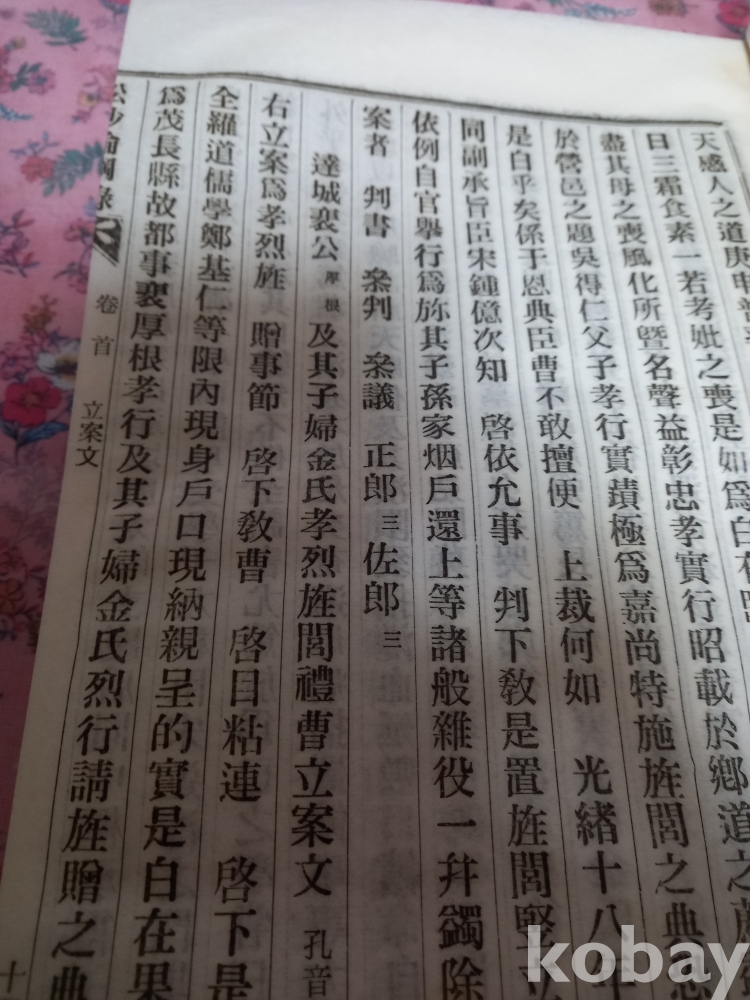 天感人之道庚申
日三霜食素一若考妣之喪是如爲白在
盡其母之喪風化所曁名聲益彰忠孝實行昭載於鄕道之薦
於營邑之題吳得仁父子孝行實蹟極爲嘉尙特施旌閭之典恐
是白乎矣係于恩典臣曹不敢擅便 上裁何如 光緖十八年
同副承旨臣宋鍾億次知 啓依允事 判下敎是置旌閭竪立
依例自官擧行爲旀其子孫家烟戶還上等諸般雜役一幷蠲除
案者 判書 叅判 叅議 正郞 三 佐郞 三
達城裵公 厚根 及其子婦金氏孝烈旌閭禮曹立案文 孔音
右立案爲孝烈旌 贈事節 啓下敎曹 啓目粘連 啓下是
全羅道儒學鄭基仁等限內現身戶口現納親呈的實是白在果
爲茂長縣故都事裵厚根孝行及其子婦金氏烈行請旌贈之典
倫綱錄 卷首 立案文 十
kobay